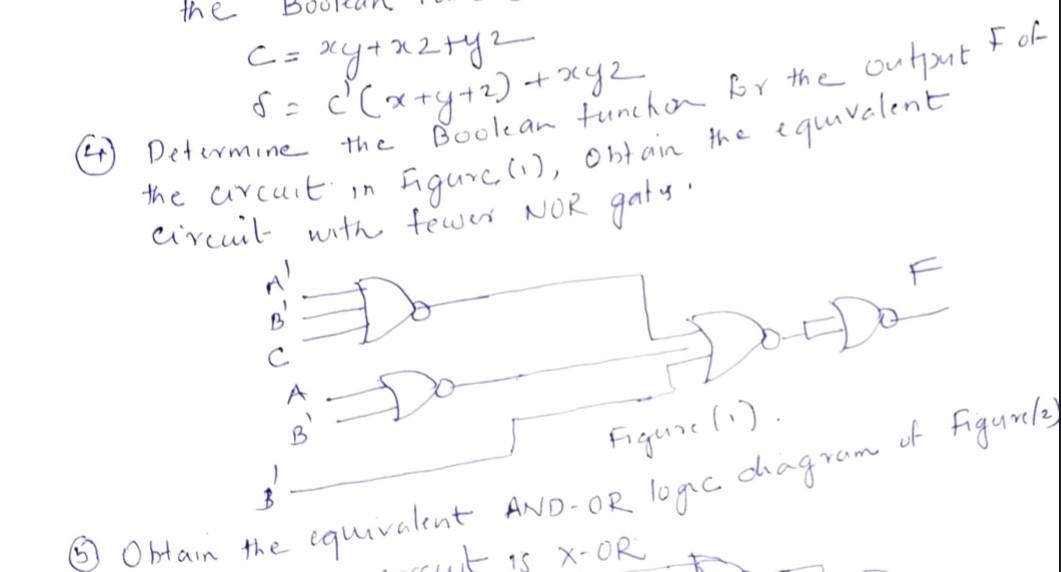 the Boolean
C = xy+xz+yz
S = C'(x+y+z) + xyz
④ Determine the Boolean function for the output F of
the circuit in Figure (1), Obtain the equivalent
circuit with fewer NOR gates.
A'
B'
C
A
B'
B'
F
Figure (1).
⑤ Obtain the equivalent AND-OR logic diagram of Figure (2)
is X-OR